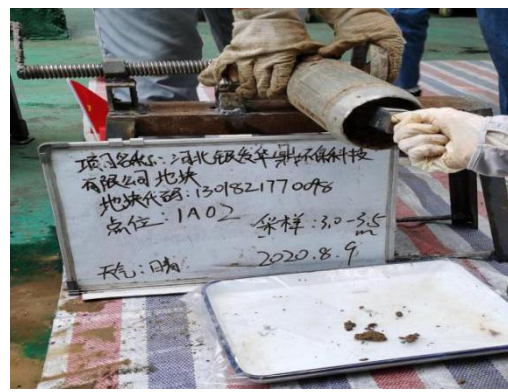 项目名称:河北银发华鼎环保科技
有限公司地块
地块代码:1301821770048
点位:1A02
采样:3.0-3.5m
天气:晴
2020.8.9